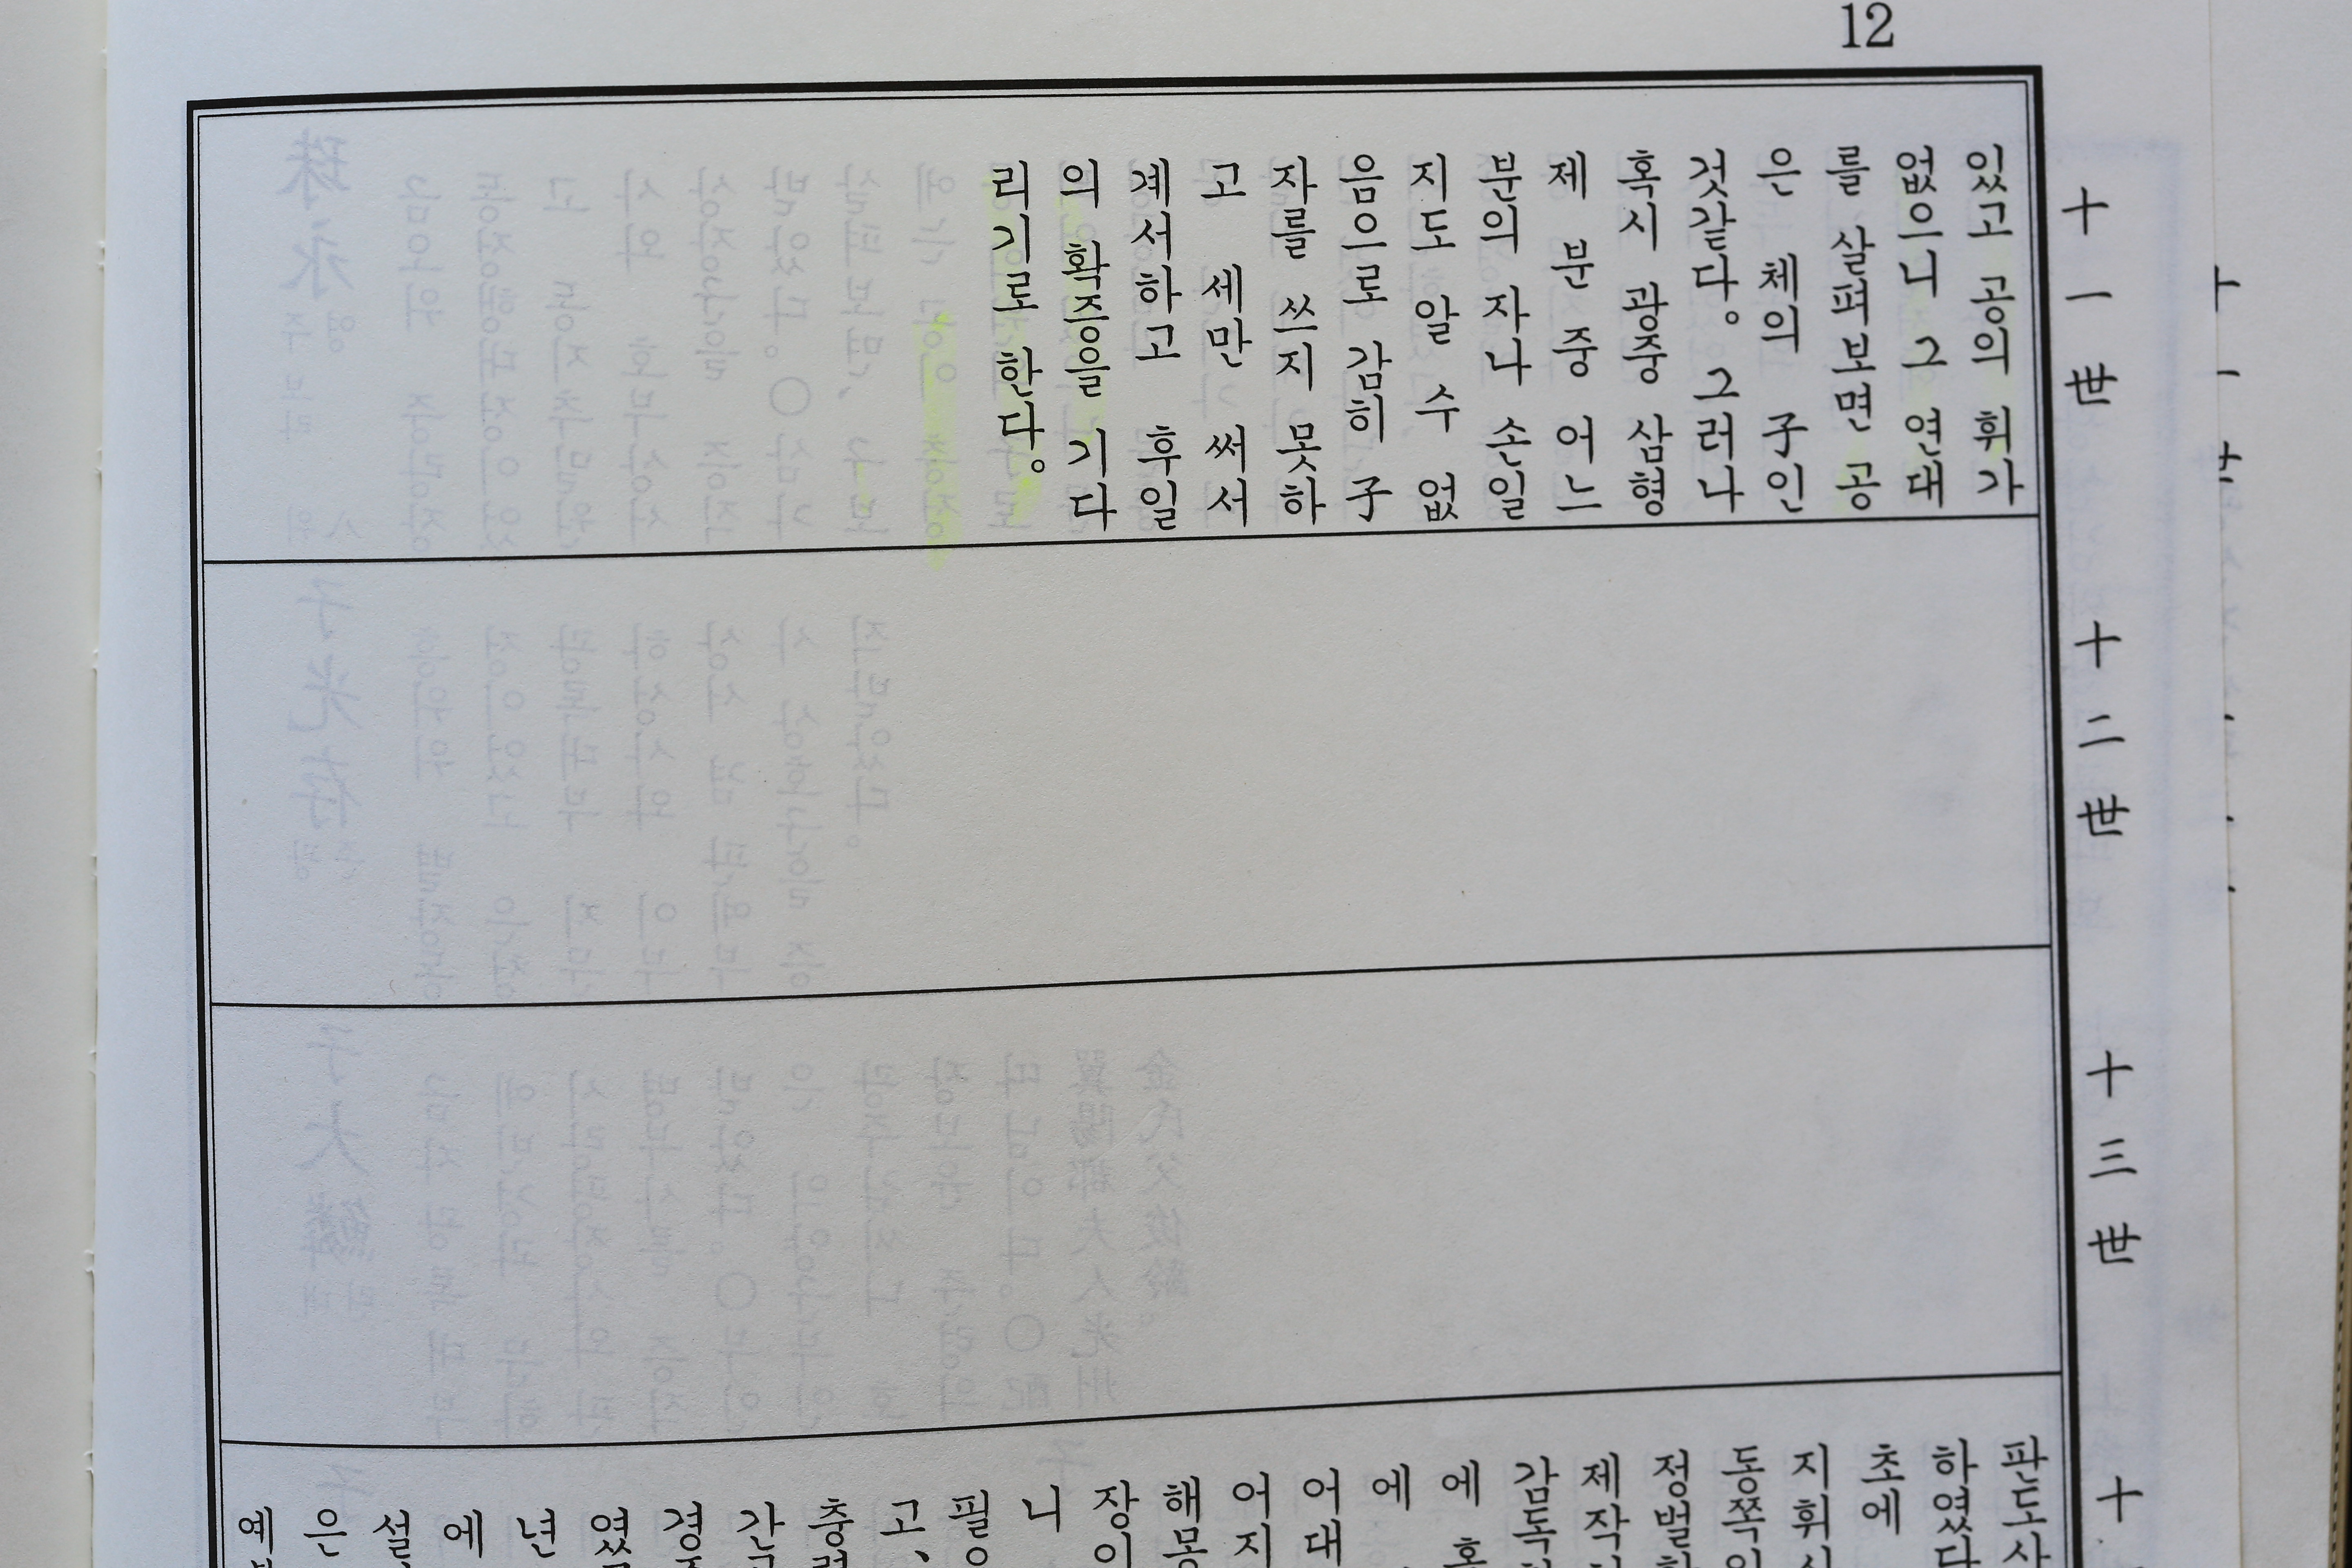 12
十一世
있고 공의 휘가
없으니 그 연대
를 살펴보면 공
은 체의 子인
것같다。그러나
혹시 광중 삼형
제 분 중 어느
분의 자나 손일
지도 알 수 없
음으로 감히 子
자를 쓰지 못하
고 세만 써서
계서하고 후일
의 확증을 기다
리기로 한다。
十二世
十三世
十
판도사
하였다
초에
지휘
동쪽
정벌
제작
감독
에
에
어대
어지
해몽
장이
니
필
고,
충
간
경
였
년
에
설
은
예